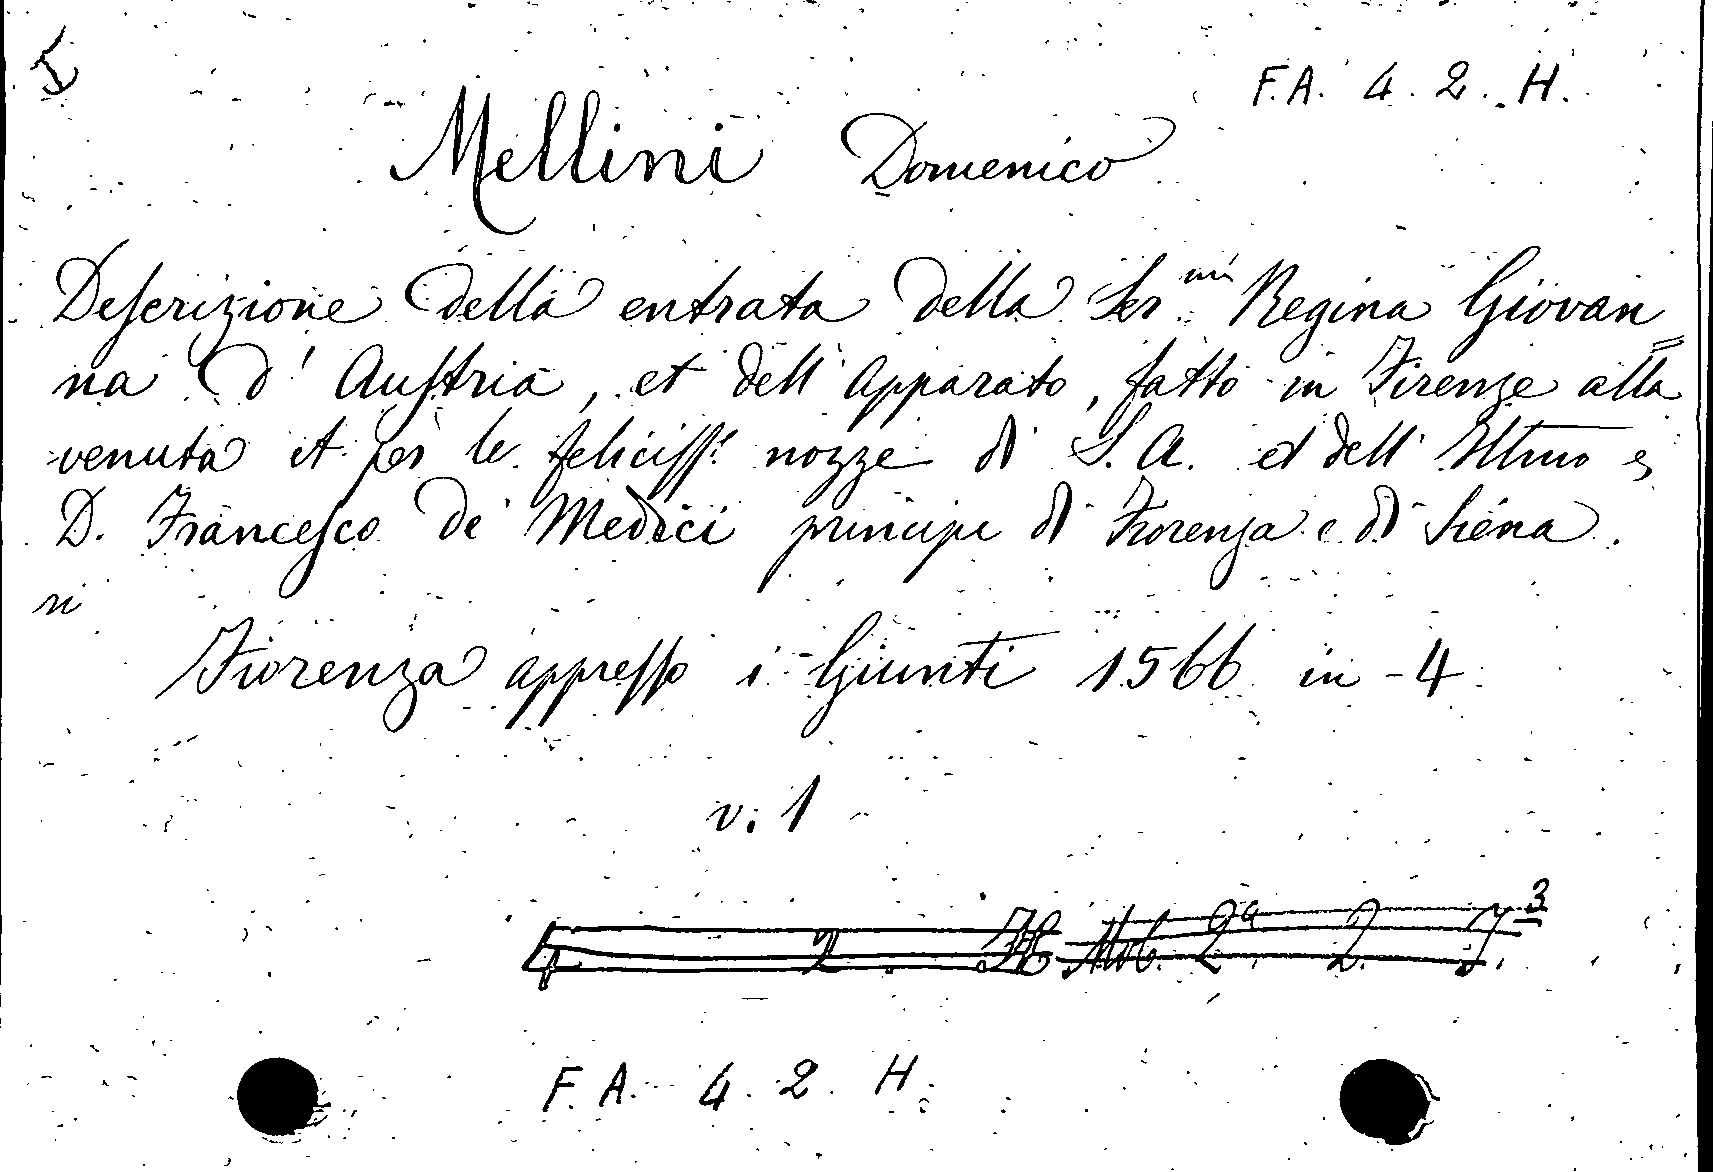 F.A. 4. 2. H.
Mellini Domenico
Descrizione della entrata della Ser.mi Regina Giovan=
na d' Austria, et dell' apparato, fatto in Firenze alla
venuta et per le feliciss.e nozze di S. A. et dell' Illmo e
D. Francesco de Medici principe di Fiorenza e di Siena.
Fiorenza appresso i Giunti 1566 in-4
v. 1
4 2. H Mob. 2a. 2. 7. 3
F. A. 4. 2. H.